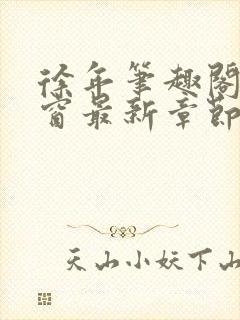 徐年筆趣閣
窗最新章節
天山小妖下山